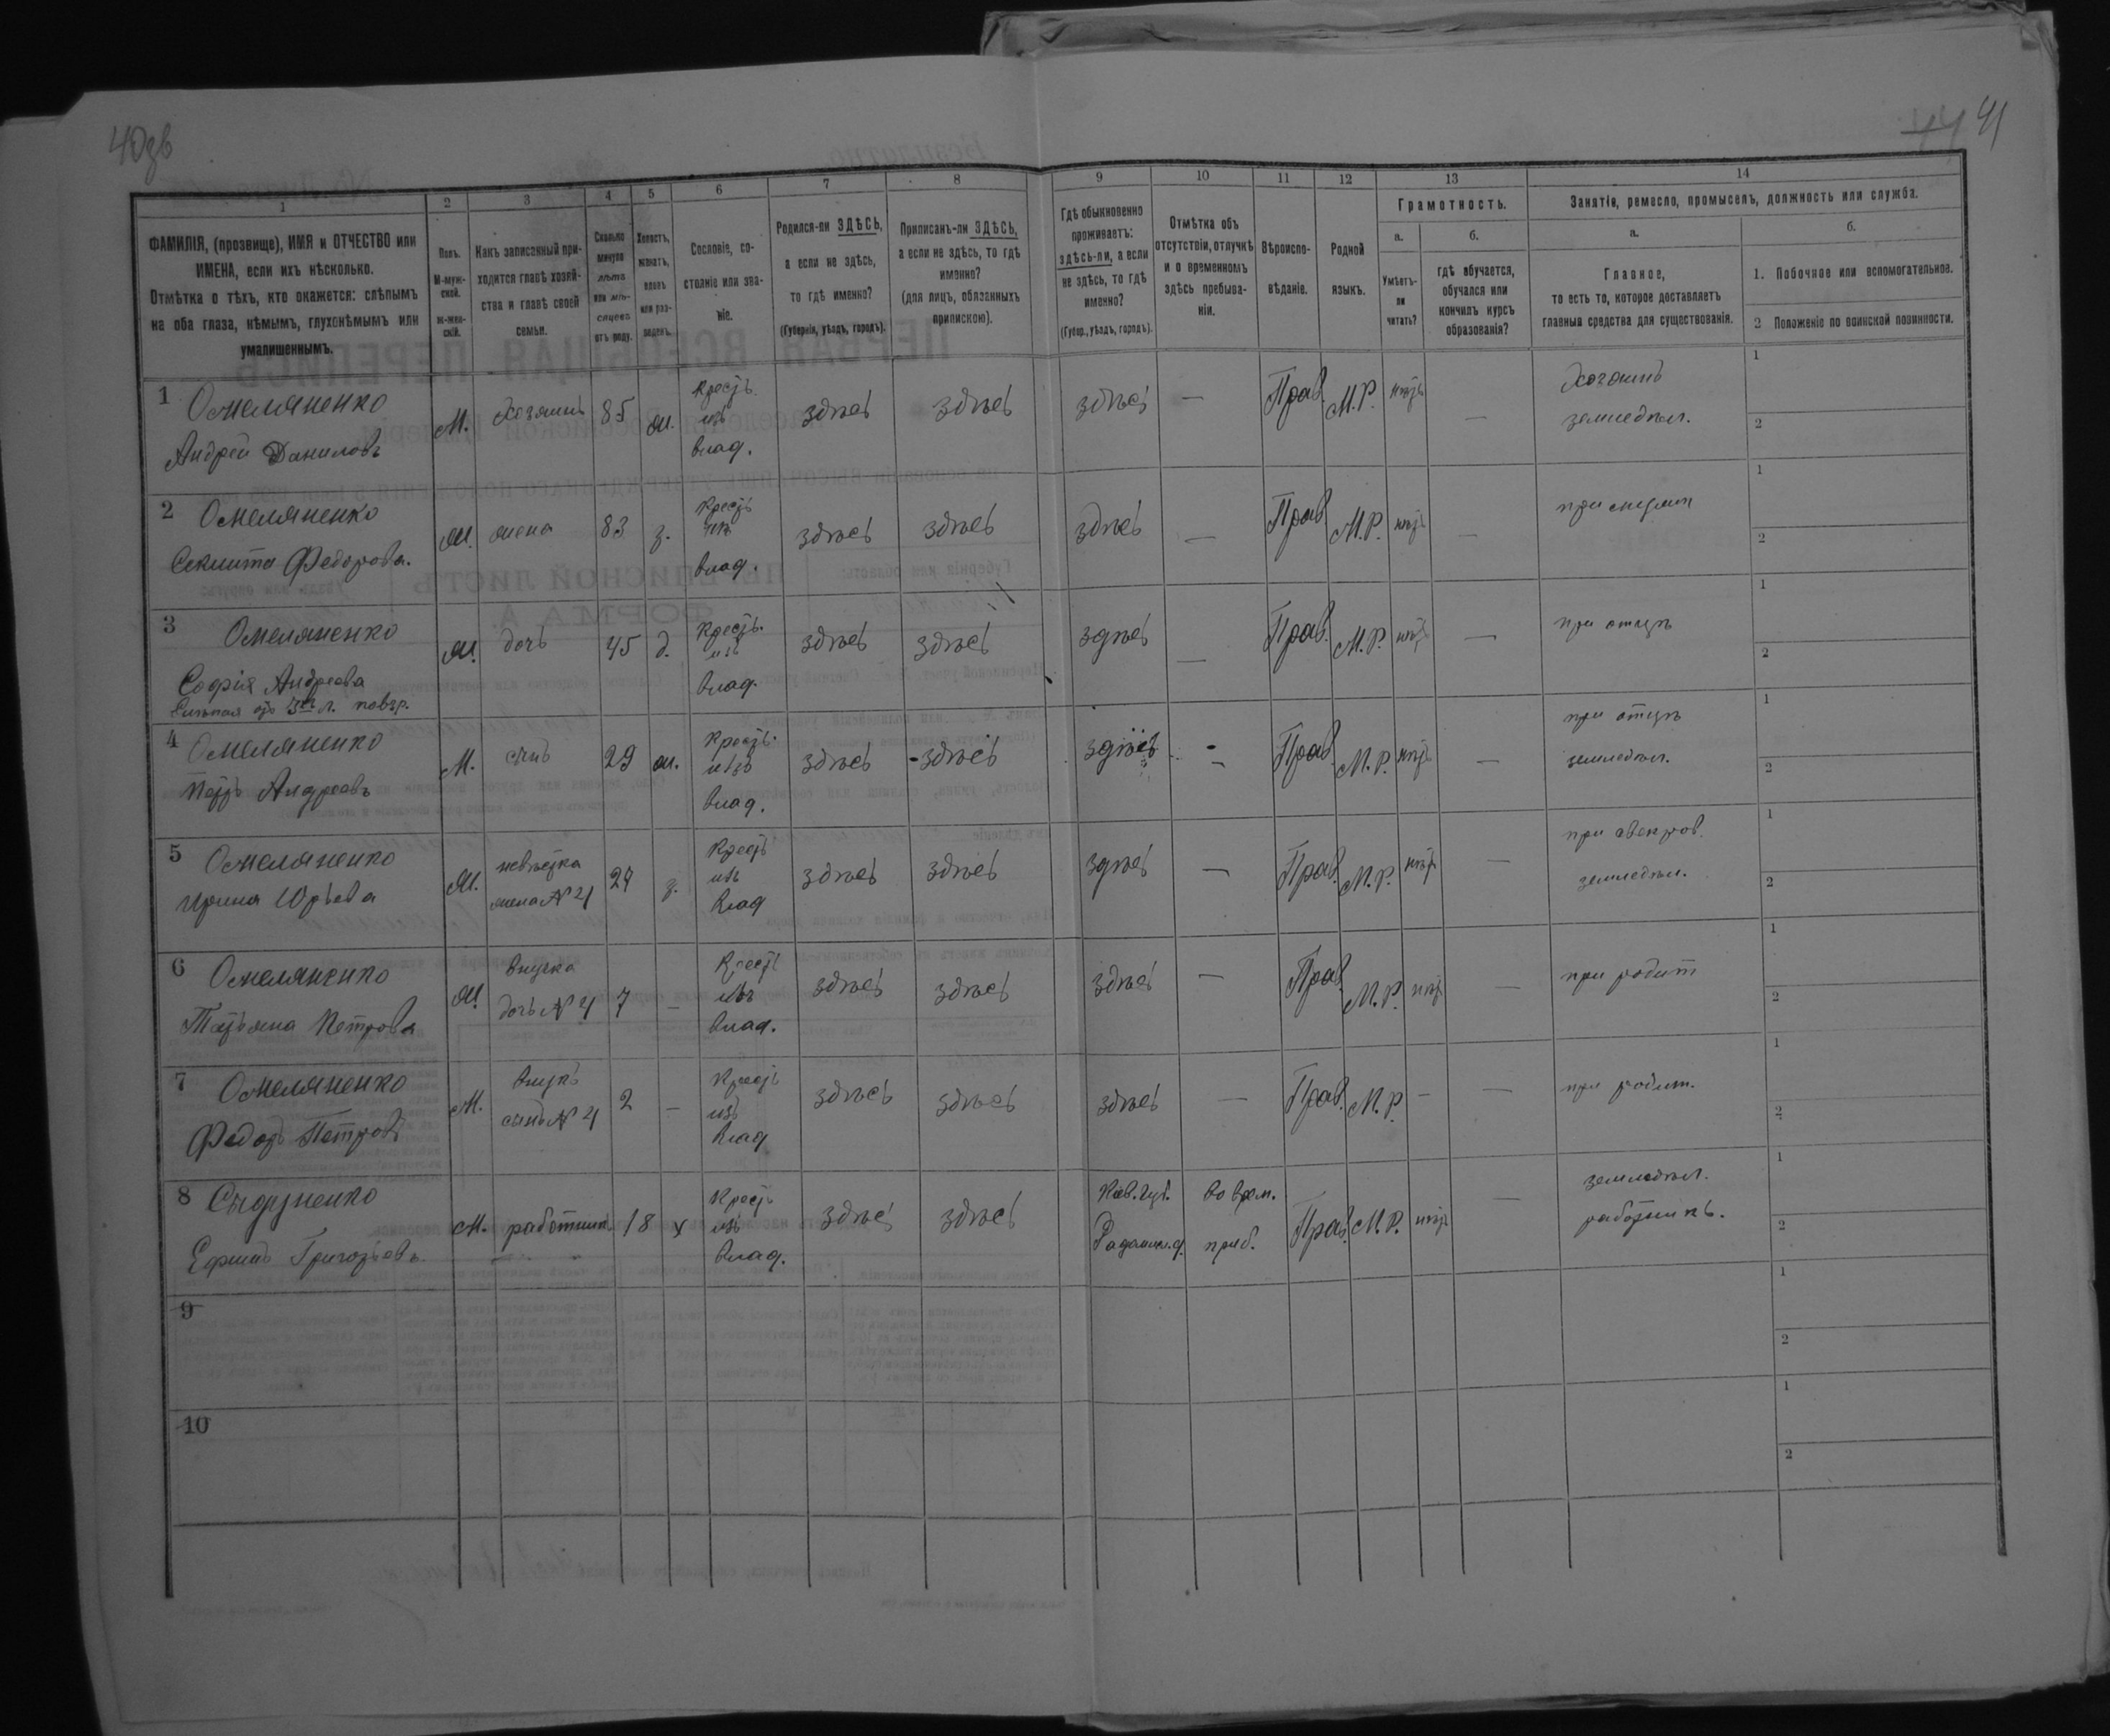 40зв
41
1 2 3 4 5 6 7 8 9 10 11 12 13 14
ФАМИЛІЯ, (прозвище), ИМЯ и ОТЧЕСТВО или ИМЕНА, если ихъ нѣсколько.
Отмѣтка о тѣхъ, кто окажется: слѣпымъ на оба глаза, нѣмымъ, глухонѣмымъ или умалишеннымъ.
Полъ. М-мужской. ж-женскій.
Какъ записанный приходится главѣ хозяйства и главѣ своей семьи.
Сколько минуло лѣтъ или мѣсяцевъ отъ роду.
Холостъ, женатъ, вдовъ или разведенъ.
Сословіе, состояніе или званіе.
Родился-ли ЗДѢСЬ, а если не здѣсь, то гдѣ именно? (Губернія, уѣздъ, городъ).
Приписанъ-ли ЗДѢСЬ, а если не здѣсь, то гдѣ именно? (для лицъ, обязанныхъ припискою).
Гдѣ обыкновенно проживаетъ: здѣсь-ли, а если не здѣсь, то гдѣ именно? (Губер., уѣздъ, городъ).
Отмѣтка объ отсутствіи, отлучкѣ и о временномъ здѣсь пребываніи.
Вѣроисповѣданіе.
Родной языкъ.
Грамотность.
а. Умѣетъ-ли читать?
б. гдѣ обучается, обучался или кончилъ курсъ образованія?
Занятія, ремесло, промыселъ, должность или служба.
а. Главное, то есть то, которое доставляетъ главныя средства для существованія.
б. 1. Побочное или вспомогательное.
2 Положеніе по воинской повинности.
1 Омеляненко М. Хозяинъ 85 ж. Крест. изъ влад. здѣсь здѣсь здѣсь — Прав. М.Р. нѣтъ — Хозяинъ земледѣл. 1 2
Андрей Даниловъ
2 Омеляненко Ж. жена 83 з. Крест. изъ влад. здѣсь здѣсь здѣсь — Прав М.Р. нѣтъ — при 1 2
Федорова.
3 Омеляненко Ж. дочь 45 д. Крест. изъ влад. здѣсь здѣсь здѣсь — Прав. М.Р. нѣтъ — при отцѣ 1 2
Софія Андреева
4 Омеляненко М. сынъ 29 ж. Крест. изъ влад. здѣсь здѣсь здѣсь — Прав М.Р. нѣтъ — при отцѣ земледѣл. 1 2
Петръ Андреевъ
5 Омеляненко Ж. невѣстка жена №4 27 з. Крест изъ влад здѣсь здѣсь здѣсь — Прав. М.Р. нѣтъ — при свекров. земледѣл. 1 2
Ирина Юрьева
6 Омеляненко Ж. внучка дочь №4 7 — Крест изъ влад. здѣсь здѣсь здѣсь — Прав. М.Р. нѣтъ — при родит 1 2
Татьяна Петрова
7 Омеляненко М. внукъ сынъ №4 2 — Крест изъ влад здѣсь здѣсь здѣсь — Прав. М.Р. — — при родит. 1 2
Федоръ Петровъ
8 М. работникъ 18 х Крест изъ влад. здѣсь здѣсь Кіев. губ. во врем. приб. Прав. М.Р. нѣтъ — земледѣл. работникъ. 1 2
Ефимъ Григорьевъ
9 1 2
10 1 2